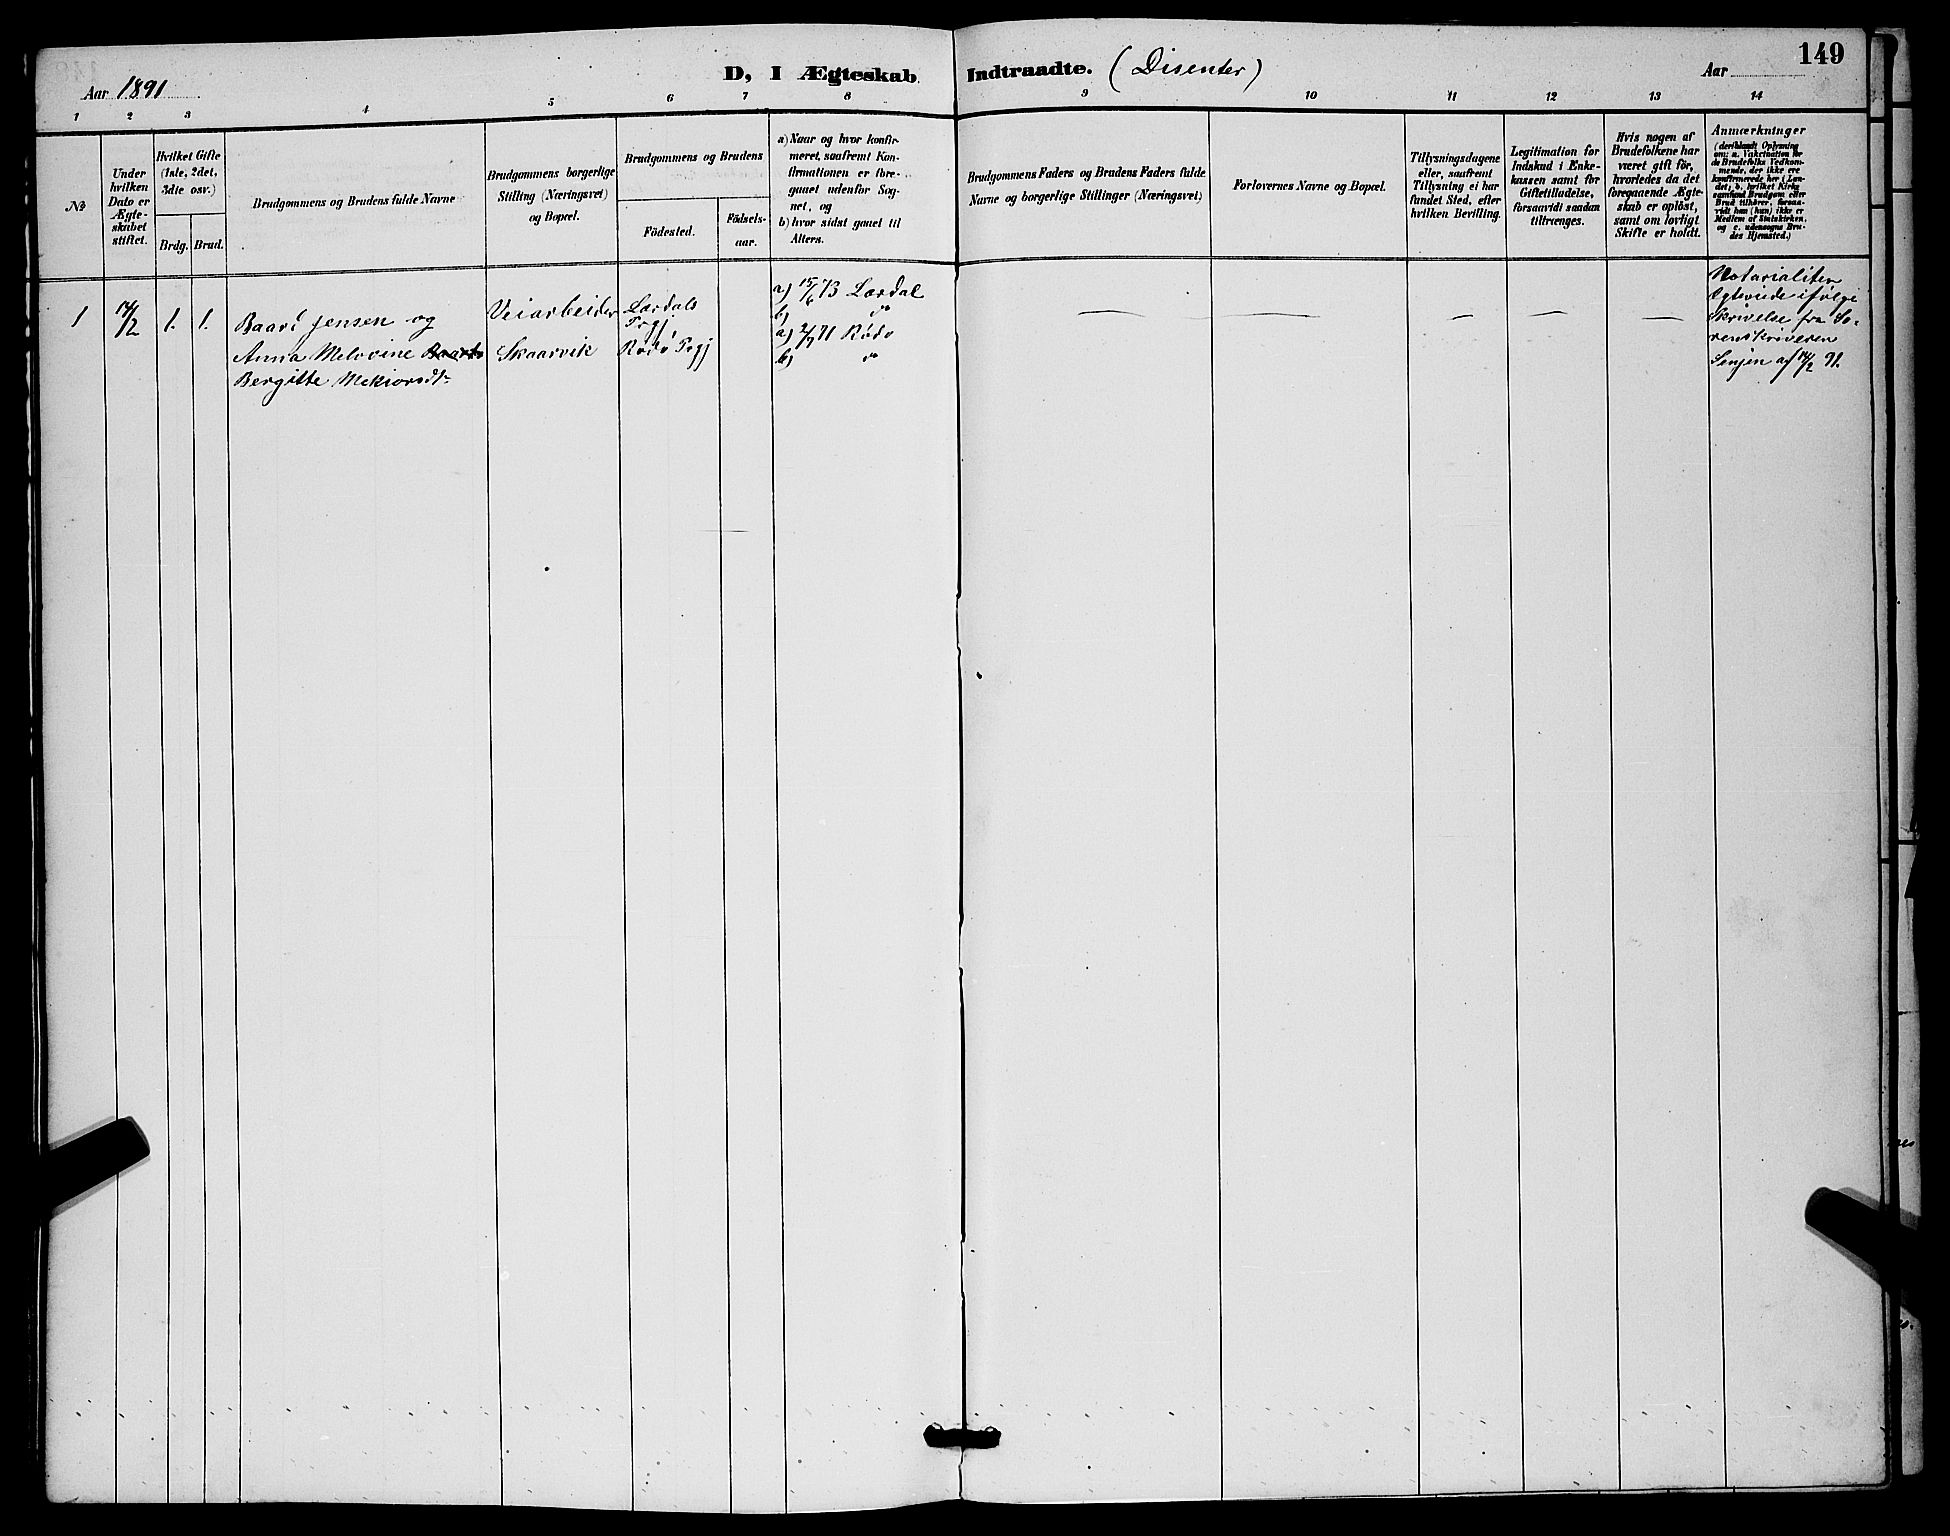 149
Aar 1891
D, I Ægteskab Indtraadte. (Disenter)
Aar
1 2 3 4 5 6 7 8 9 10 11 12 13 14
№
Under
hvilken
Dato er
Ægte-
skabet
stiftet.
Hvilket Gifte
(1ste, 2det,
3die osv.)
Brdg. Brud.
Brudgommens og Brudens fulde Navne
Brudgommens borgerlige
Stilling (Næringsvei)
og Bopæl.
Brudgommens og Brudens
Födested.
Födsels-
aar.
a) Naar og hvor konfir-
meret, saafremt Kon-
firmationen er fore-
gaaet udenfor Sog-
net, og
b) hvor sidst gaaet til
Alters.
Brudgommens Faders og Brudens Faders fulde
Navne og borgerlige Stillinger (Næringsvei)
Forlovernes Navne og Bopæl.
Tillysningsdagene
eller, saafremt
Tillysning ei har
fundet Sted, efter
hvilken Bevilling.
Legitimation for
Indskud i Enke-
kassen samt for
Giftetilladelse,
forsaavidt saadan
tiltrænges.
Hvis nogen af
Brudefolkene har
været gift för,
hvorledes da det
foregaaende Ægte-
skab er oplöst,
samt om lovligt
Skifte er holdt.
Anmærkninger
(deriblandt Oplysning
om: a. Vakcination for
de Brudefolks Vedkom-
mende, der ikke ere
konfirmerede her i Lan-
det, b. hvilket Kirke
samfund Brudgom eller
Brud tilhörer, forsaa-
vidt han (hun) ikke er
Medlem af Statskirken,
og c. udensogns Bru-
des Hjemsted.)
1 14/2 1. 1.
Baard Jensen og
Anna Melovine
Bergitte Mekiorsdt
Veiarbeider
Skaarvik
Lærdals
Prgj
Rödö Prgj
a) 15/6 73 Lærdal
b) "
a) 2/7 71 Rödö
b) "
Notarialiter
Egteviede ifölge
Skrivelse fra So-
renskriveren
Senjen af 14/2 91.